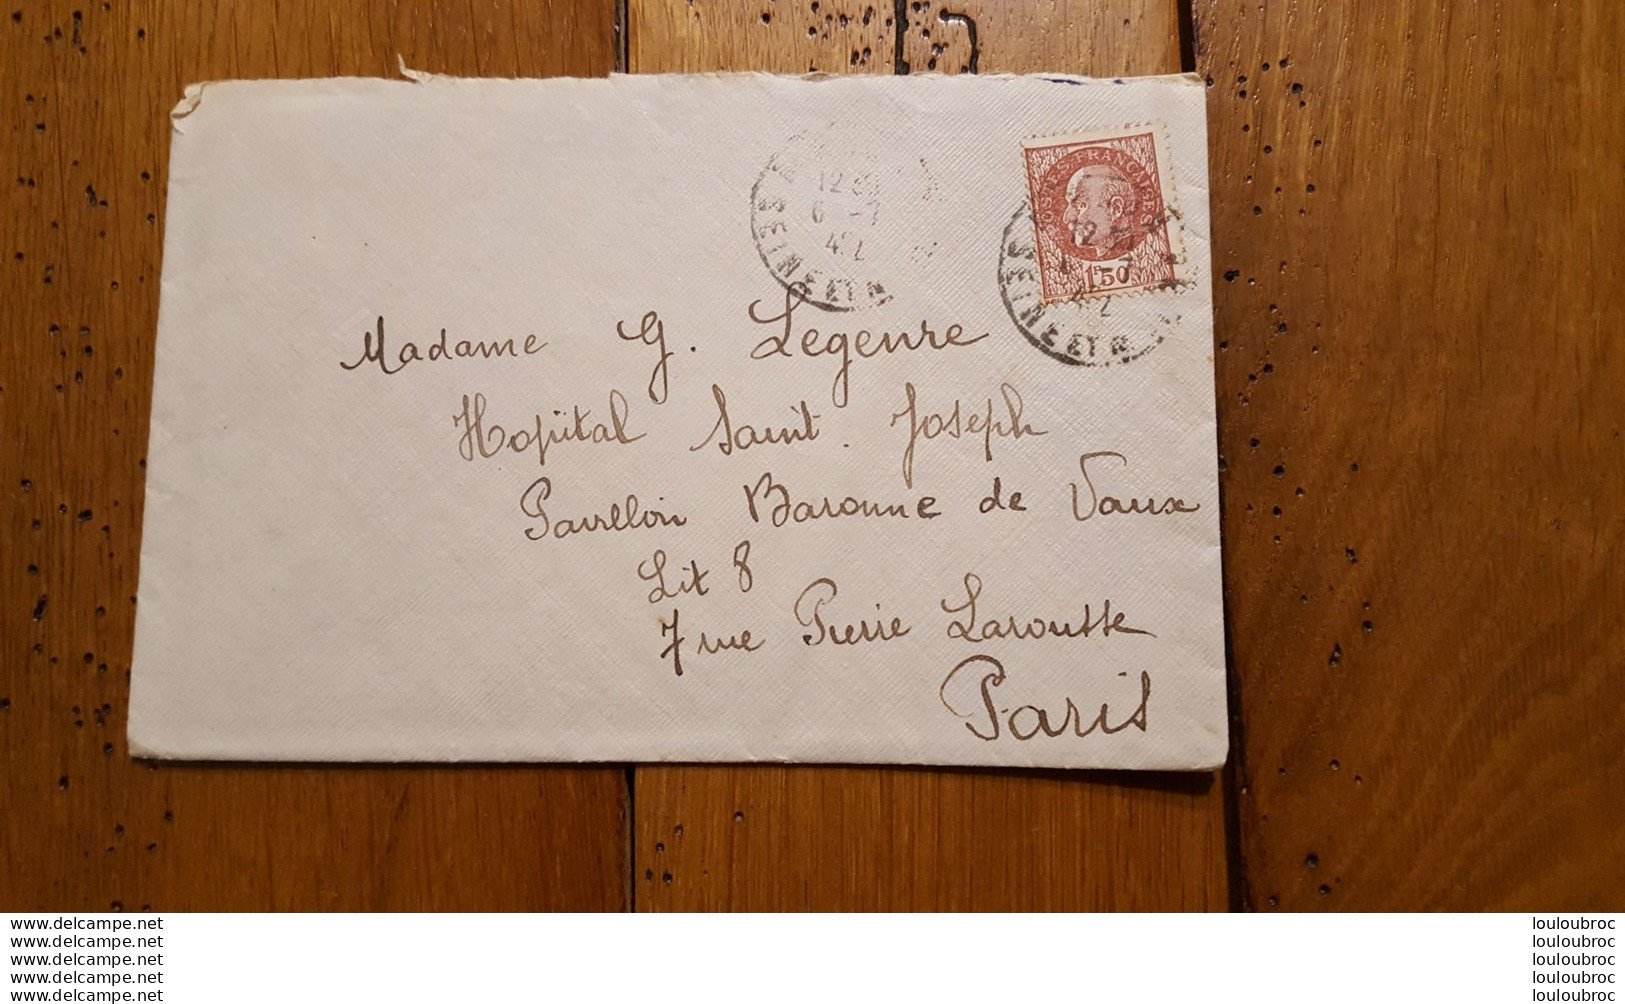 12 30
6 -7
42
SEINE ET M
POSTES FRANÇAISES
1F50
12 30
-7
42
SEINE ET M
Madame G. Legenre
Hopital Saint. Joseph
Pavillon Baronne de Vaux
Lit 8
7 rue Pierre Larousse
Paris
www.delcampe.net
www.delcampe.net
www.delcampe.net
www.delcampe.net
www.delcampe.net
louloubroc
louloubroc
louloubroc
louloubroc
louloubroc